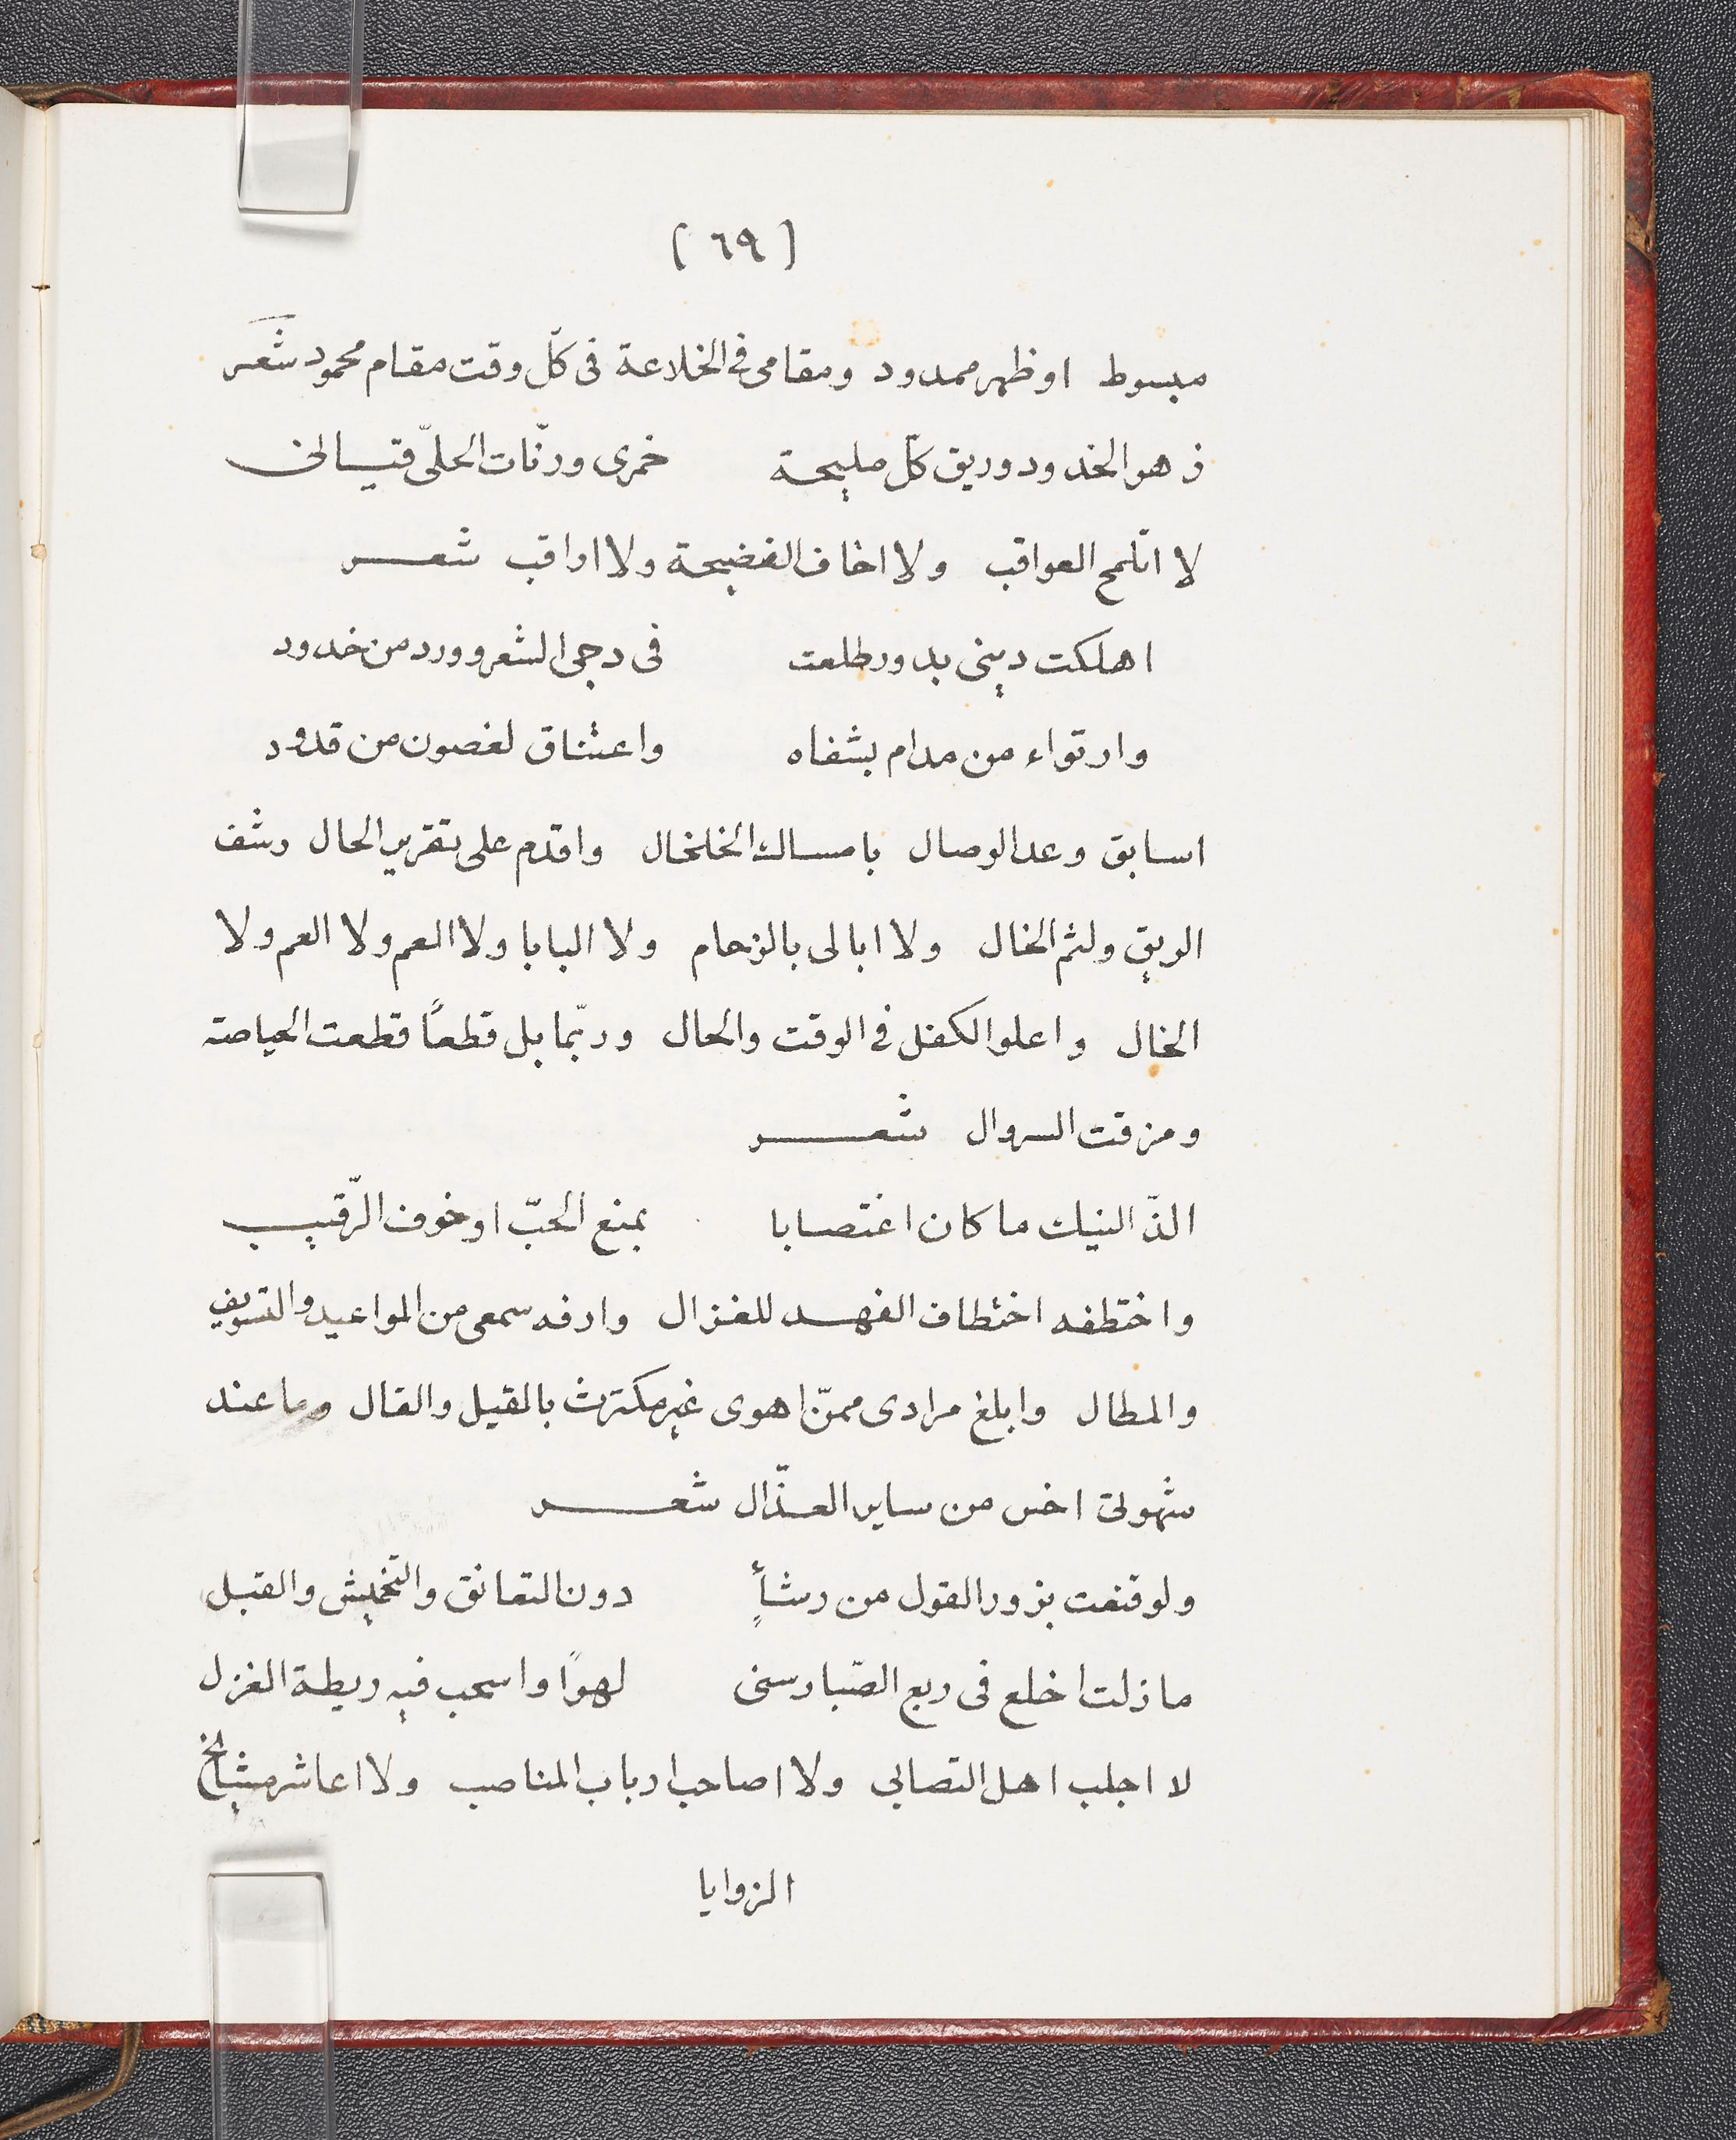 (٦٩)
مبسوط اوظهر ممدود ومقامى فى الخلاعة فى كلّ وقت مقام محمود شعر
زهو الخدود وريق كلّ مليحة خمرى ورنّات الحلىّ قيانى
لا اتلمح العواقب ولا اخاف الفضيحة ولا اراقب شعر
اهلكت دينى بدور طلعت فى دجى الشعر وورد من خدود
وارتواء من مدام بشفاه واعتناق لغصون من قدود
اسابق وعد الوصال بامساك الخلخال واقدم على تقرير الحال رشف
الريق ولثم الخال ولا ابالى بالزحام ولا البابا ولا العم ولا العم ولا
الخال واعلو الكفل فى الوقت والحال وربّما بل قطعًا قطعت الحياصة
ومزقت السروال شعر
الذّ النيك ما كان اغتصابا بمنع الحبّ او خوف الرّقيب
واختطفه اختطاف الفهد للغزال وارفه سمعى من المواعيد والتسويف
والمطال وابلغ مرادى ممّن اهوى غير مكترث بالقيل والقال وما عند
شهوتى اخس من ساير العذّال شعر
ولو قنعت بزور القول من رشأٍ دون التعانق والتخميش والقبل
ما زلت اخلع فى ربع الصّبا رسنى لهوًا واسحب فيه ريطة الغزل
لا اجلب اهل التصابى ولا اصاحب ارباب المناصب ولا اعاشر مشايخ
الزوايا